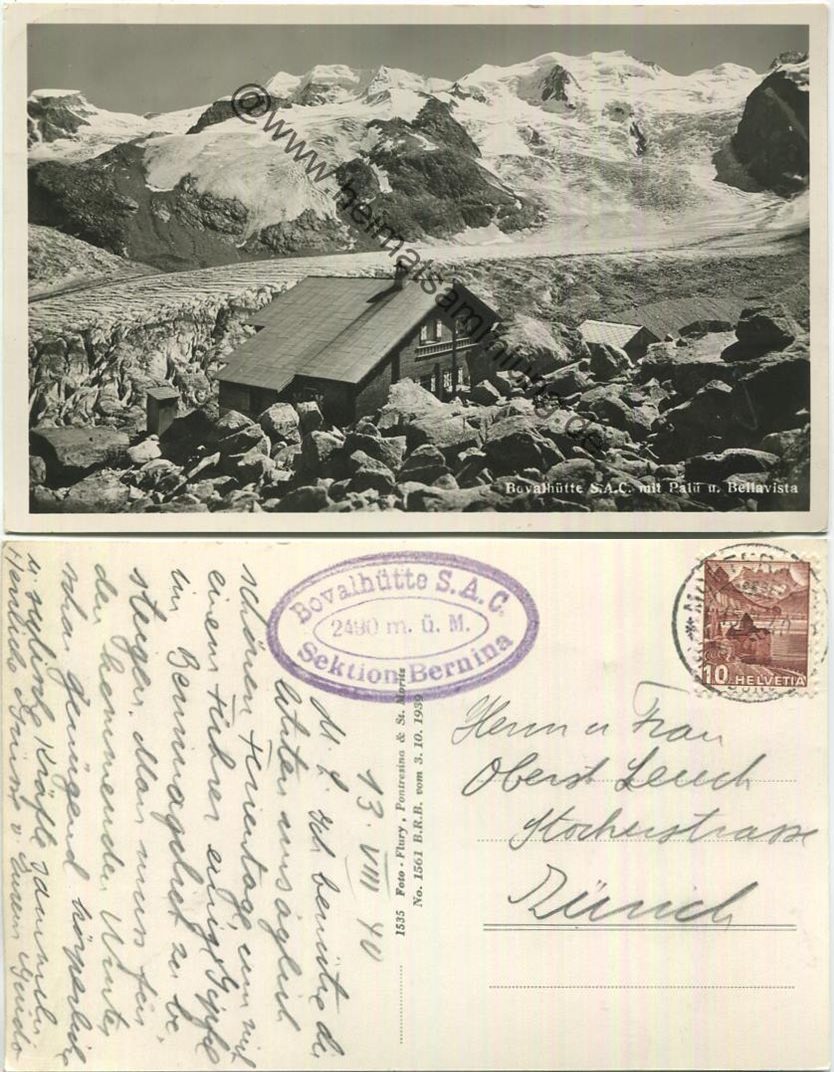 @www.heimatsammlung.de
Bovalhütte S.A.C. mit Palü u. Bellavista
Bovalhütte S.A.C.
2490 m. ü. M.
Sektion Bernina
10 HELVETIA
1535 Foto-Flury, Pontresina & St. Moritz
No. 1561 B.R.B. vom 3. 10. 1939
Herrn u Frau
Oberst Leuch
Stockerstrasse
Zürich
13. VIII 40
M. L. Ich benutze die
schönen Ferientage um mit
einem Führer einige Gipfel
im Berninagebiet zu be
steigen. Man muss für
den kommenden Winter
schon genügend körperliche
u. seelische Kräfte sammeln
Herzliche Grüsse v. Eurem Guido